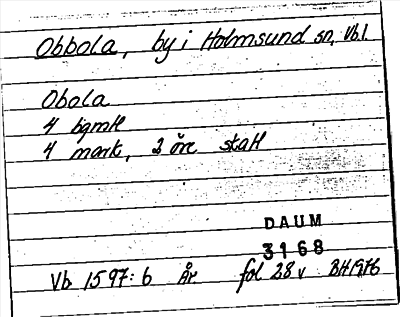 Obbola, by i Holmsund sn, Vb.l.
Obola
4 bgmtl
4 mark, 2 öre skatt
DAUM
3168
Vb 1597:6 År fol 28 v BH1976